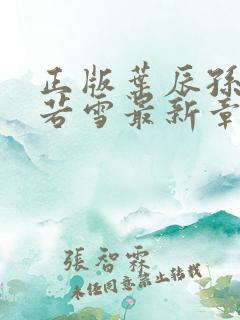 正版葉辰孫
若雪最新章
張智霖
未经同意禁止转载